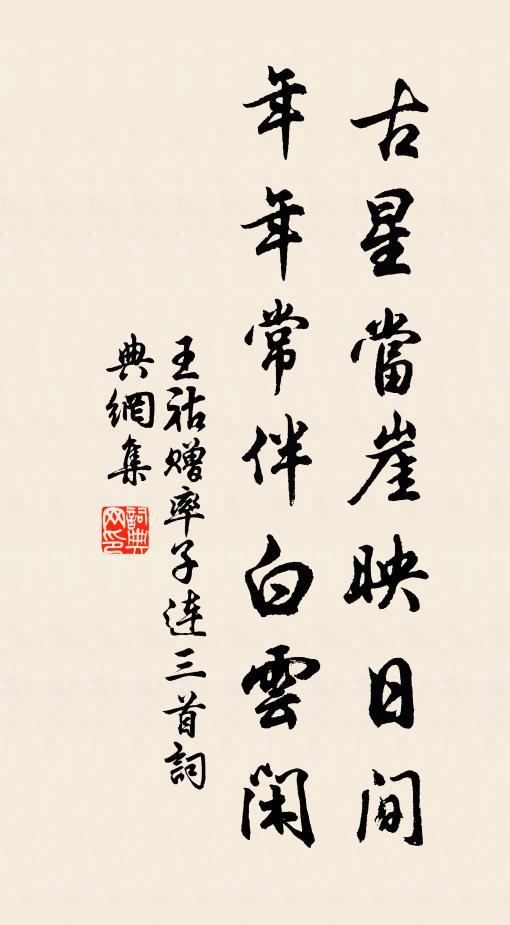 古星當崖映日間
年年常伴白雲閑
王祜贈率子連三首詞
典網集
詞典网印